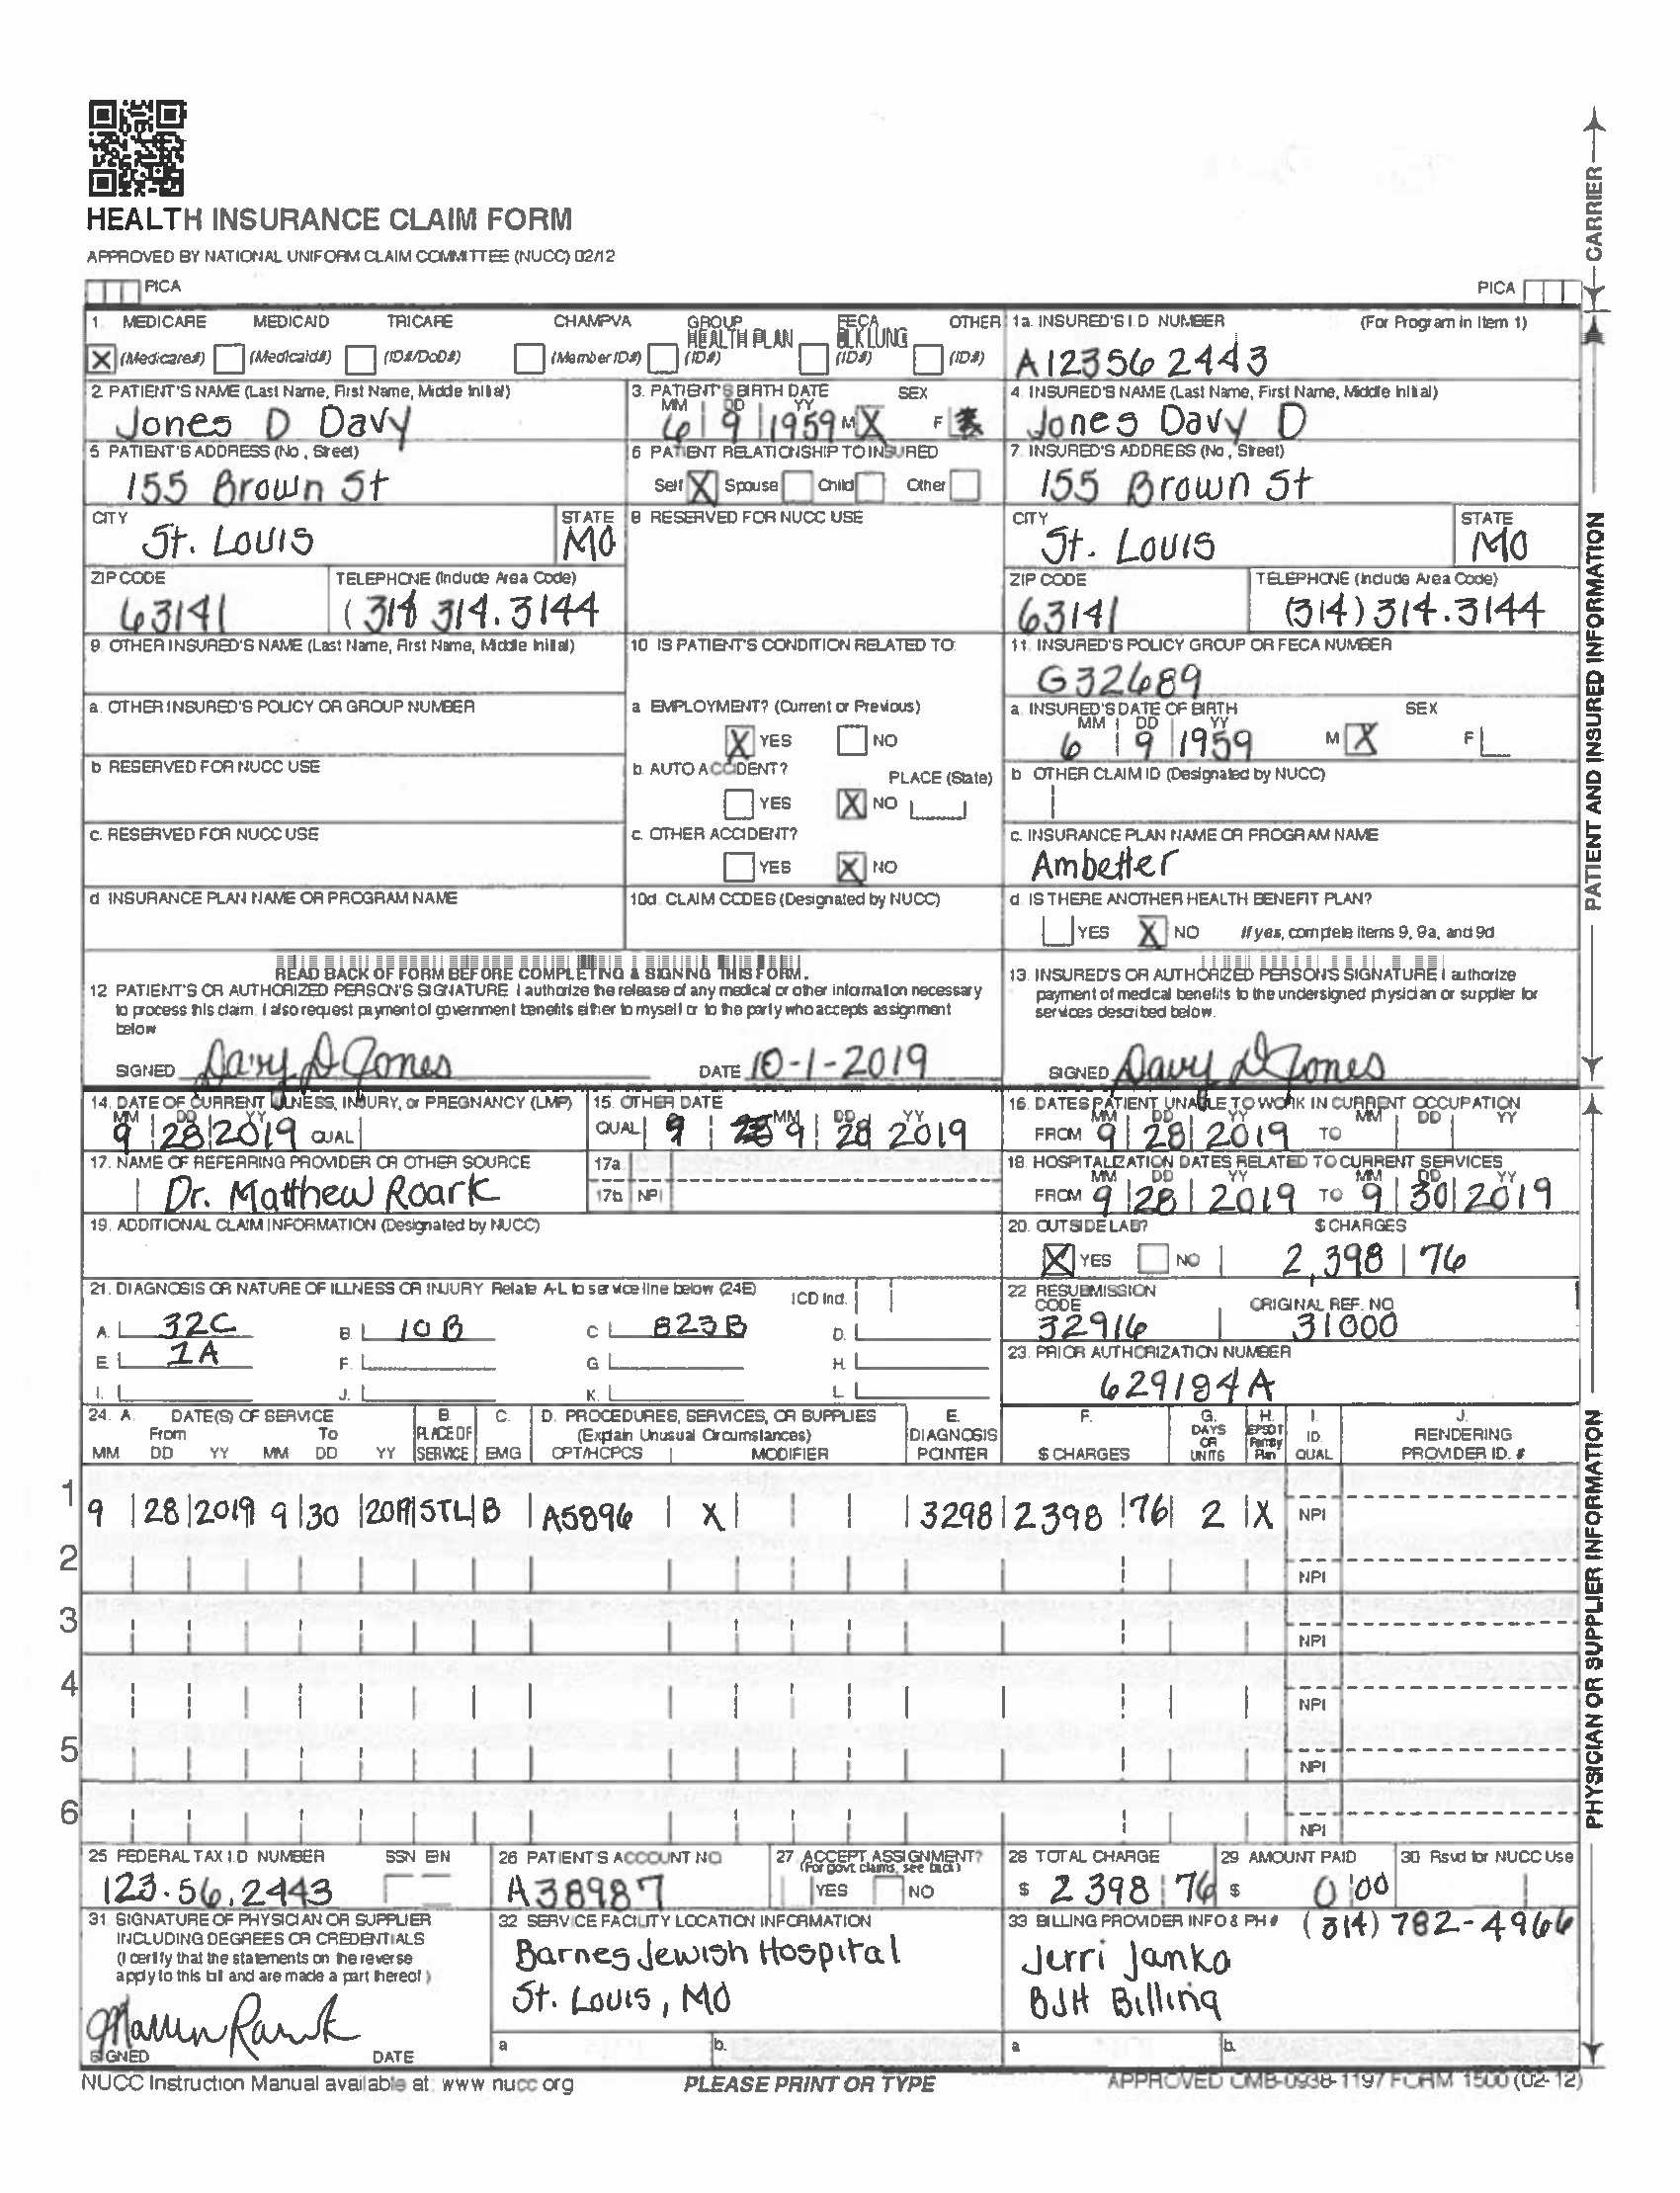 HEALTH INSURANCE CLAIM FORM
APPROVED BY NATIONAL UNIFORM CLAIM COMMITTEE (NUCC) 02/12
PICA
PICA
CARRIER
1. MEDICARE MEDICAID TRICARE CHAMPVA GROUP HEALTH PLAN FECA BLK LUNG OTHER
X (Medicare#) (Medicaid#) (ID#/DoD#) (Member ID#) (ID#) (ID#) (ID#)
1a. INSURED'S I.D. NUMBER (For Program in Item 1)
A123562443
2. PATIENT'S NAME (Last Name, First Name, Middle Initial)
Jones D Davy
3. PATIENT'S BIRTH DATE SEX
MM DD YY
6 9 1959 M X F
4. INSURED'S NAME (Last Name, First Name, Middle Initial)
Jones Davy D
5. PATIENT'S ADDRESS (No., Street)
155 Brown St
6. PATIENT RELATIONSHIP TO INSURED
Self X Spouse Child Other
7. INSURED'S ADDRESS (No., Street)
155 Brown St
CITY STATE
St. Louis MO
8. RESERVED FOR NUCC USE
CITY STATE
St. Louis MO
ZIP CODE TELEPHONE (Include Area Code)
63141 (314 314.3144
ZIP CODE TELEPHONE (Include Area Code)
63141 (314) 314.3144
9. OTHER INSURED'S NAME (Last Name, First Name, Middle Initial)
10. IS PATIENT'S CONDITION RELATED TO:
11. INSURED'S POLICY GROUP OR FECA NUMBER
G32689
a. OTHER INSURED'S POLICY OR GROUP NUMBER
a. EMPLOYMENT? (Current or Previous)
X YES NO
a. INSURED'S DATE OF BIRTH SEX
MM DD YY
6 9 1959 M X F
b. RESERVED FOR NUCC USE
b. AUTO ACCIDENT? PLACE (State)
YES X NO
b. OTHER CLAIM ID (Designated by NUCC)
c. RESERVED FOR NUCC USE
c. OTHER ACCIDENT?
YES X NO
c. INSURANCE PLAN NAME OR PROGRAM NAME
Ambetter
d. INSURANCE PLAN NAME OR PROGRAM NAME
10d. CLAIM CODES (Designated by NUCC)
d. IS THERE ANOTHER HEALTH BENEFIT PLAN?
YES X NO If yes, complete items 9, 9a, and 9d.
READ BACK OF FORM BEFORE COMPLETING & SIGNING THIS FORM.
12. PATIENT'S OR AUTHORIZED PERSON'S SIGNATURE I authorize the release of any medical or other information necessary
to process this claim. I also request payment of government benefits either to myself or to the party who accepts assignment
below.
SIGNED Davy D Jones DATE 10-1-2019
13. INSURED'S OR AUTHORIZED PERSON'S SIGNATURE I authorize
payment of medical benefits to the undersigned physician or supplier for
services described below.
SIGNED Davy D Jones
PATIENT AND INSURED INFORMATION
14. DATE OF CURRENT ILLNESS, INJURY, or PREGNANCY (LMP)
MM DD YY
9 28 2019 QUAL
15. OTHER DATE
MM DD YY
QUAL 9 9 28 2019
16. DATES PATIENT UNABLE TO WORK IN CURRENT OCCUPATION
MM DD YY MM DD YY
FROM 9 28 2019 TO
17. NAME OF REFERRING PROVIDER OR OTHER SOURCE
Dr. Matthew Roark
17a.
17b. NPI
18. HOSPITALIZATION DATES RELATED TO CURRENT SERVICES
MM DD YY MM DD YY
FROM 9 28 2019 TO 9 30 2019
19. ADDITIONAL CLAIM INFORMATION (Designated by NUCC)
20. OUTSIDE LAB? $ CHARGES
X YES NO 2,398 76
21. DIAGNOSIS OR NATURE OF ILLNESS OR INJURY Relate A-L to service line below (24E) ICD Ind.
A. 32C B. 10B C. 823B D.
E. 1A F. G. H.
I. J. K. L.
22. RESUBMISSION
CODE ORIGINAL REF. NO.
32916 31000
23. PRIOR AUTHORIZATION NUMBER
629184A
24. A. DATE(S) OF SERVICE B. C. D. PROCEDURES, SERVICES, OR SUPPLIES E. F. G. H. I. J.
From To PLACE OF (Explain Unusual Circumstances) DIAGNOSIS DAYS OR EPSDT Family ID. RENDERING
MM DD YY MM DD YY SERVICE EMG CPT/HCPCS MODIFIER POINTER $ CHARGES UNITS Plan QUAL. PROVIDER ID. #
1 9 28 2019 9 30 2019 STL B A5896 X 3298 2398 76 2 X NPI
2 NPI
3 NPI
4 NPI
5 NPI
6 NPI
PHYSICIAN OR SUPPLIER INFORMATION
25. FEDERAL TAX I.D. NUMBER SSN EIN
123.56.2443
26. PATIENT'S ACCOUNT NO.
A38987
27. ACCEPT ASSIGNMENT?
(For govt. claims, see back)
YES NO
28. TOTAL CHARGE
$ 2398 76
29. AMOUNT PAID
$ 0 00
30. Rsvd for NUCC Use
31. SIGNATURE OF PHYSICIAN OR SUPPLIER
INCLUDING DEGREES OR CREDENTIALS
(I certify that the statements on the reverse
apply to this bill and are made a part thereof.)
SIGNED DATE
32. SERVICE FACILITY LOCATION INFORMATION
Barnes Jewish Hospital
St. Louis, MO
a. b.
33. BILLING PROVIDER INFO & PH # (314) 782-4966
Jerri Janko
BJH Billing
a. b.
NUCC Instruction Manual available at: www.nucc.org
PLEASE PRINT OR TYPE
APPROVED OMB-0938-1197 FORM 1500 (02-12)